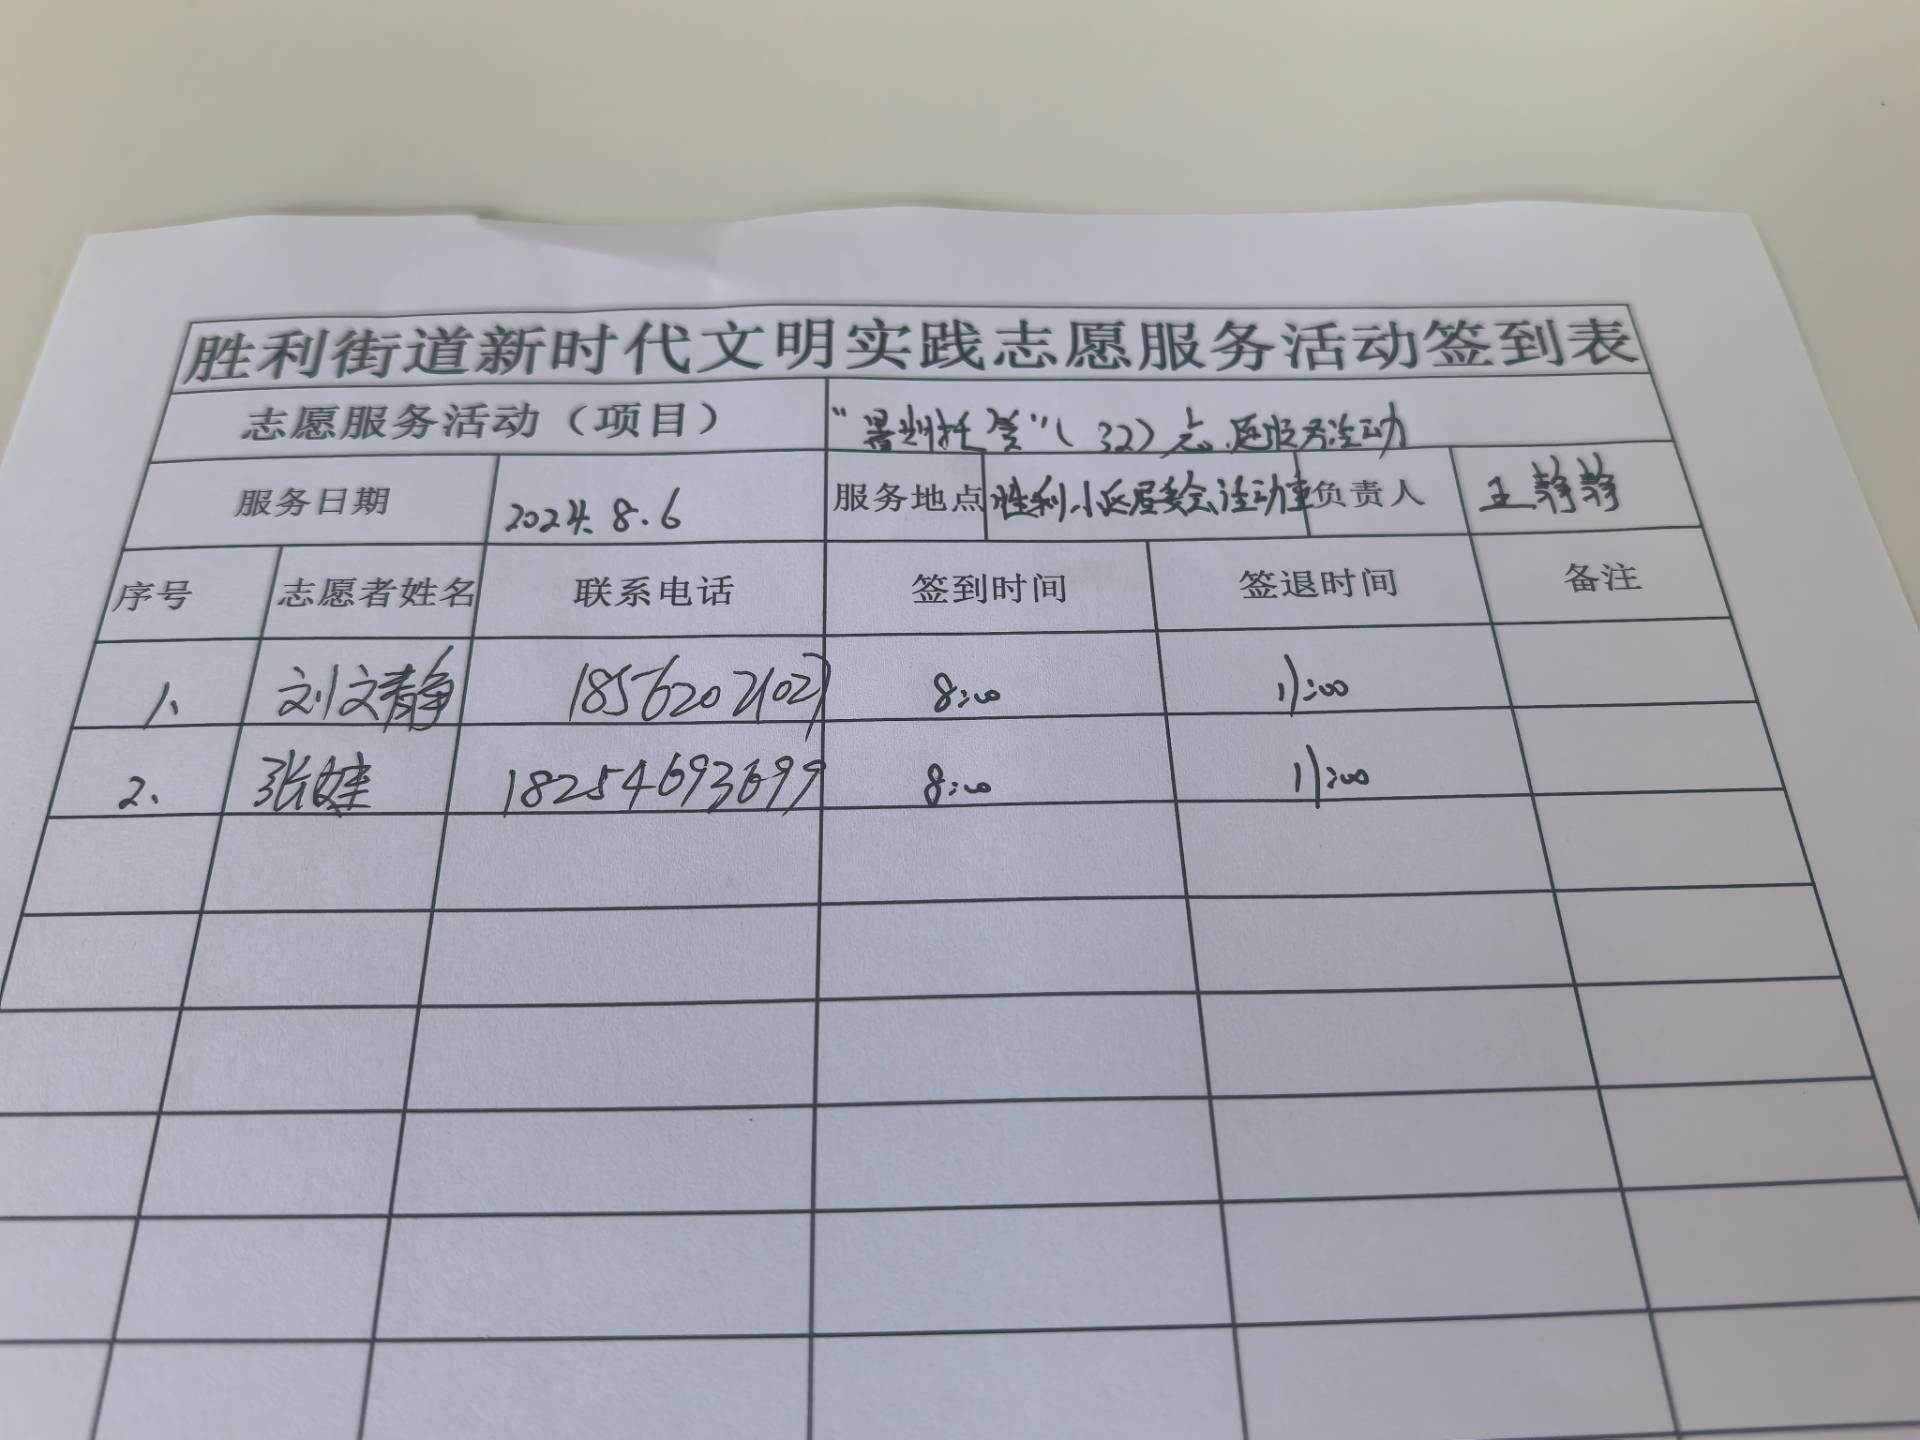 胜利街道新时代文明实践志愿服务活动签到表
志愿服务活动（项目） “暑期托管”（32）志愿服务活动
服务日期 2024.8.6 服务地点 胜利小区居委会活动室 负责人 王静静
序号 志愿者姓名 联系电话 签到时间 签退时间 备注
1、 刘文静 18562021027 8:00 11:00
2、 张婕 18254693699 8:00 11:00